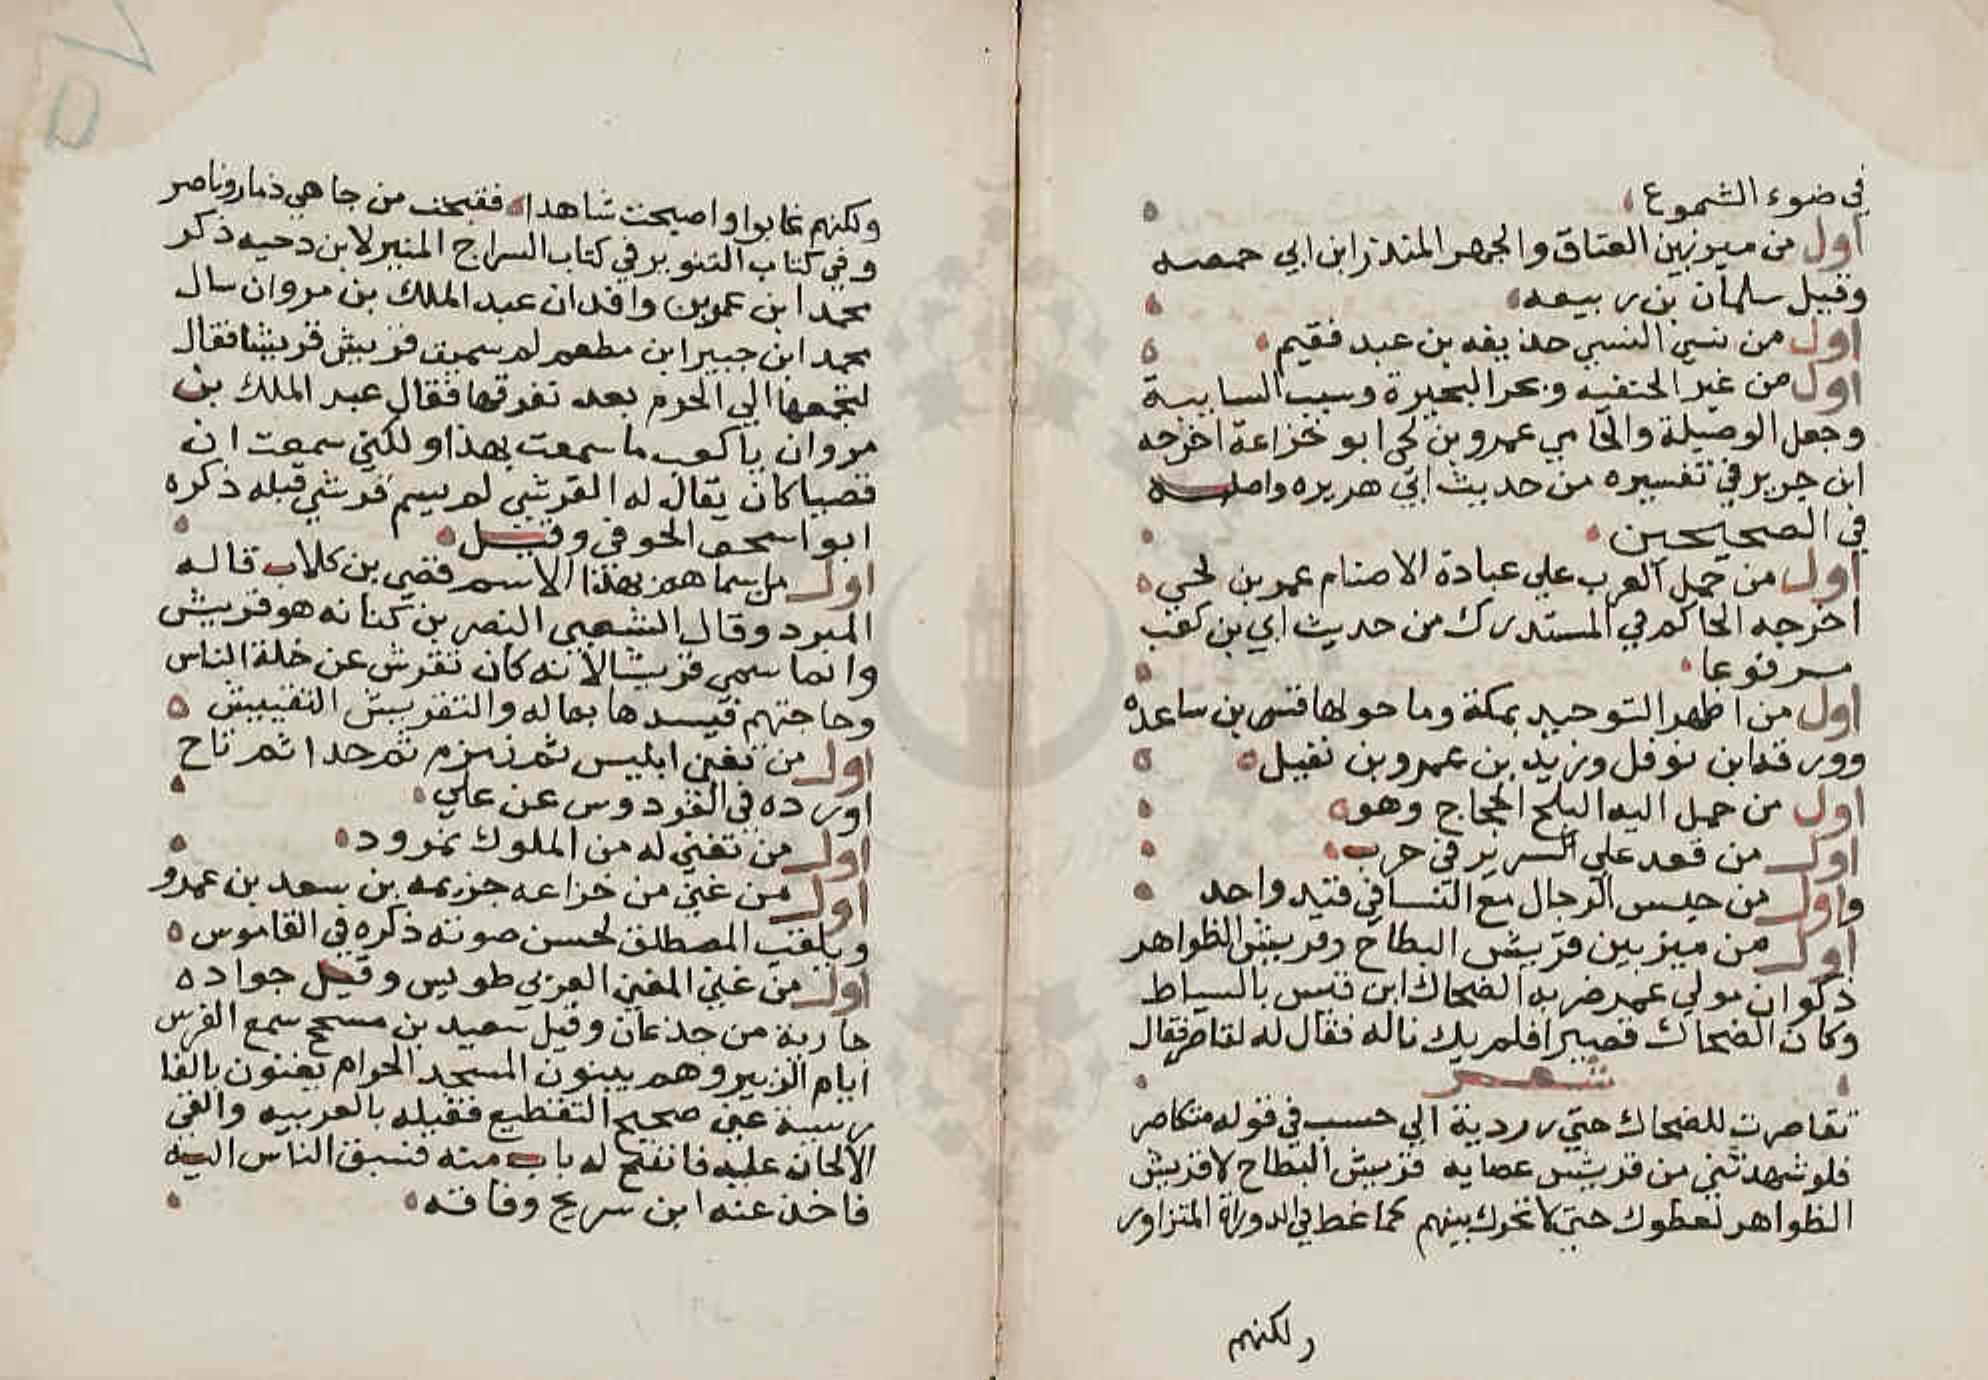 في ضوء الشموع
اول من ميز بين العتاق والهجر المنذر ابن ابي حمصه
وقيل سلمان بن ربيعه
اول من نسئ النسي حذيفه بن عبد فقيم
اول من غير الحنفيه وبحر البحيرة وسيب السايبة
وجعل الوصيلة والحامي عمرو بن لحي ابو خزاعة اخرجه
ابن جرير في تفسيره من حديث ابي هريره واصله
في الصحيحين
اول من حمل العرب علي عبادة الاصنام عمر بن لحي
اخرجه الحاكم في المستدرك من حديث ابي بن كعب
مرفوعا
اول من اظهر التوحيد بمكة وما حولها قس بن ساعده
وورقه ابن نوفل وزيد بن عمرو بن نفيل
اول من حمل اليه البلح الحجاج وهو
اول من قعد علي السرير في حرب
واول من حبس الرجال مع النسا في قيد واحد
اول من ميز بين قريش البطاح وقريش الظواهر
ذكوان مولي عمر ضربه الضحاك ابن قيس بالسياط
وكان الضحاك قصيرا فلم يك ناله فقال له لقاصر فقال
شعر
تقاصرت للضحاك حتي رددنة الي حسب في قوله متكاصر
فلو شهدتني من قريش عصايه قريش البطاح لا قريش
الظواهر لغطوك حتي لا تحرك بينهم كما غط في الدوراة المتزاور
ولكنهم
ولكنهم غابوا واصبحت شاهدا فقبحت من جاهي ذمار وناصر
وفي كتاب التنوير في كتاب السراج المنير لابن دحيه ذكر
محمد ابن عمر بن واقد ان عبد الملك بن مروان سال
محمد ابن جبير ابن مطعم لم سميت قريش قريشا فقال
لتجمعها الي الحرم بعد تفرقها فقال عبد الملك بن
مروان يا كعب ما سمعت بهذا ولكني سمعت ان
قصيا كان يقال له القرشي لم يسم قرشي قبله ذكره
ابو اسحق الحوفي وقيل
اول من سماهم بهذا الاسم قصي بن كلاب قاله
المبرد وقال الشعبي النضر بن كنانه هو قريش
وانما سمي قريشا لانه كان تقرش عن خلة الناس
وحاجتهم فيسدها بماله والتقريش التفتيش
اول من تغني ابليس ثم زمزم ثم حدا ثم ناح
اورده في الفردوس عن علي
اول من تغني له من الملوك نمرود
اول من غني من خزاعه جزيمه بن سعد بن عمرو
ويلقب المصطلق لحسن صوته ذكره في القاموس
اول من غني المغني العزبي طويس وقيل جواده
جارية من جذعان وقيل سعيد بن مسجح سمع الفرس
ايام الزبير وهم يبنون المسجد الحرام يغنون بالفا
رسية غني صحيح التقطيع فقبله بالعربيه والقي
الالحان عليه فانفتح له باب منه فسبق الناس اليه
فاخذ عنه ابن سريج وفاقه